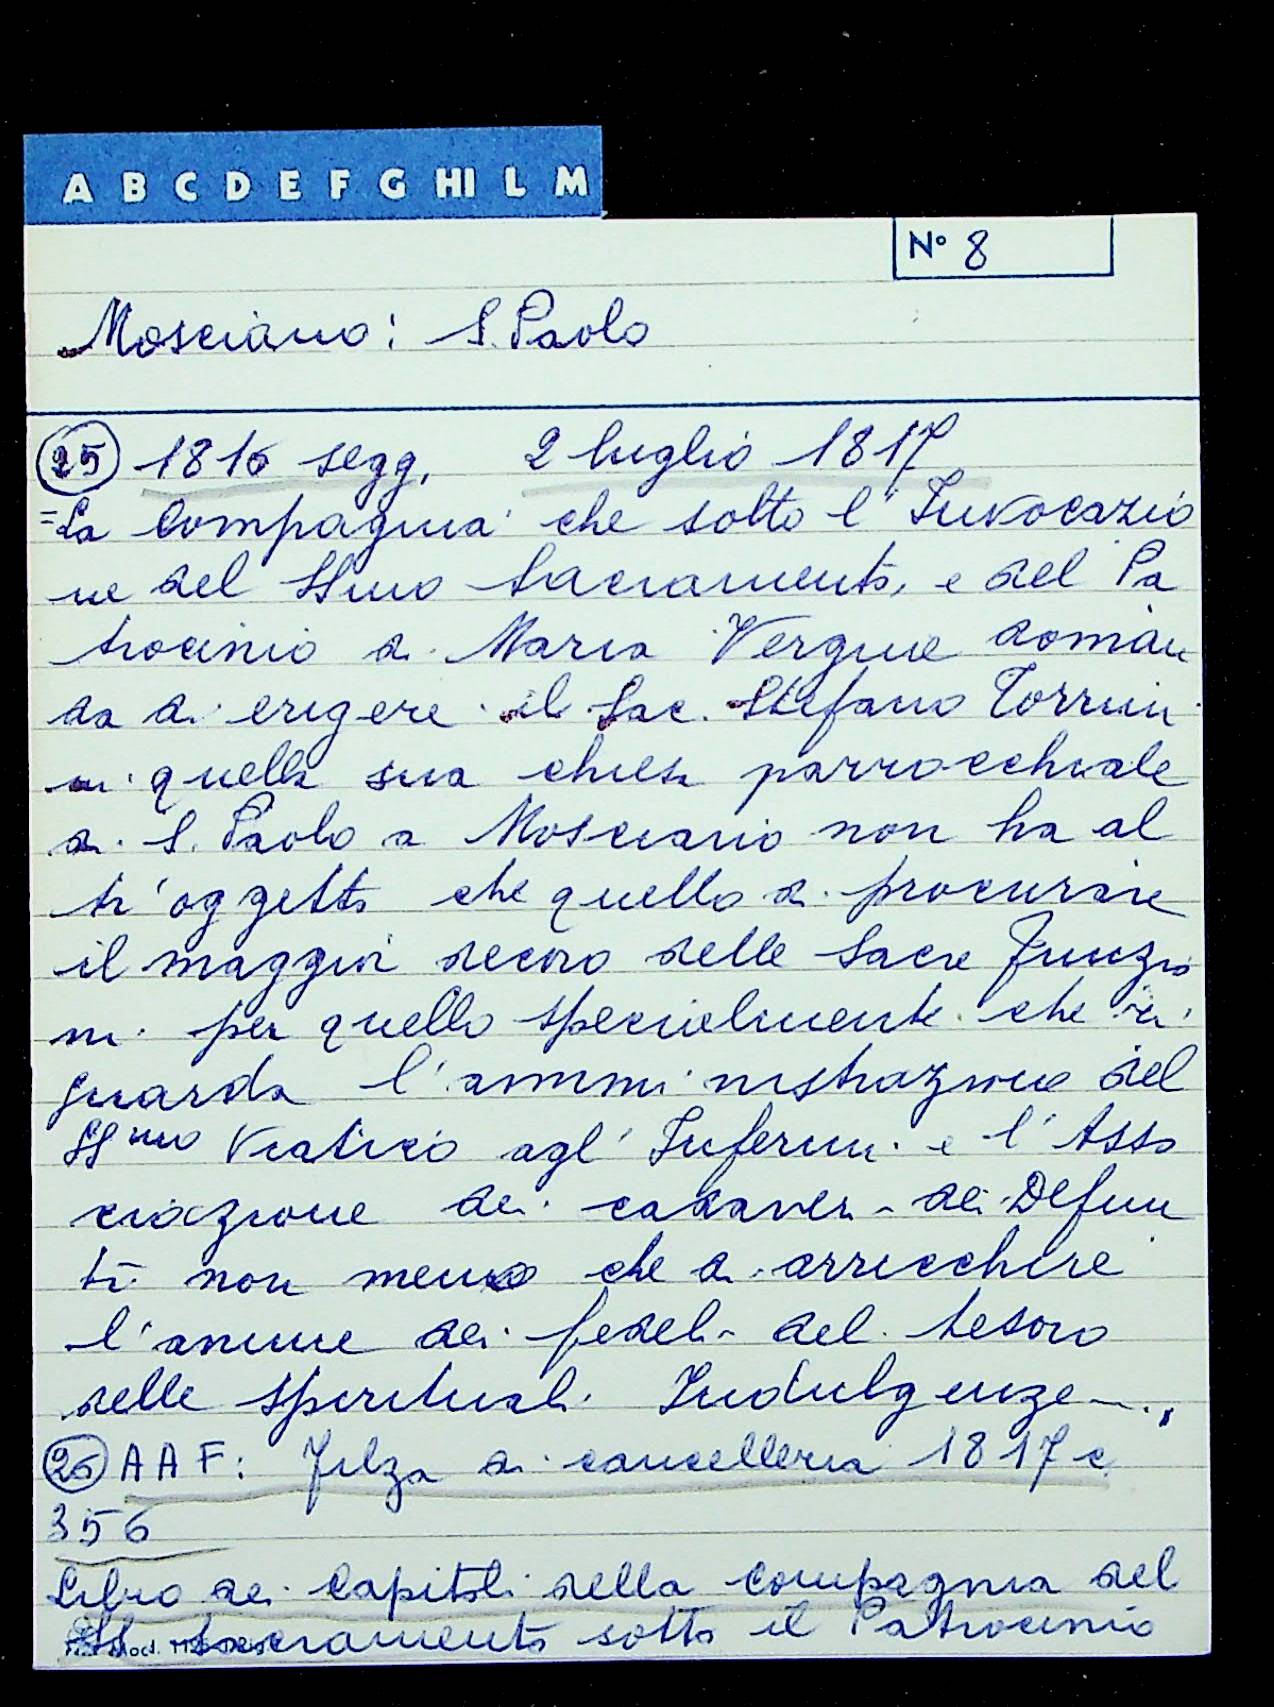 A B C D E F G HI L M
N° 8
Mosciano: S. Paolo
25 1816 segg. 2 luglio 1817
=La Compagnia che sotto l'Invocazio
ne del SSmo Sacramento, e del Pa
trocinio di Maria Vergine doman
da di erigere il Sac. Stefano Torrini
in quella sua chiesa parrocchiale
di S. Paolo a Mosciano non ha al
tr'oggetto che quello di procurare
il maggior decoro delle Sacre Funzio
ni per quello specialmente che ri
guarda l'amministrazione del
SSmo Viatico agl'Infermi e l'Asso
ciazione dei cadaveri dei Defun
ti non meno che di arricchire
l'anime dei fedeli del tesoro
delle spirituali Indulgenze
26 AAF: Filza di cancelleria 1817 c
356
Libro dei Capitoli della Compagnia del
SS Sacramento sotto il Patrocinio